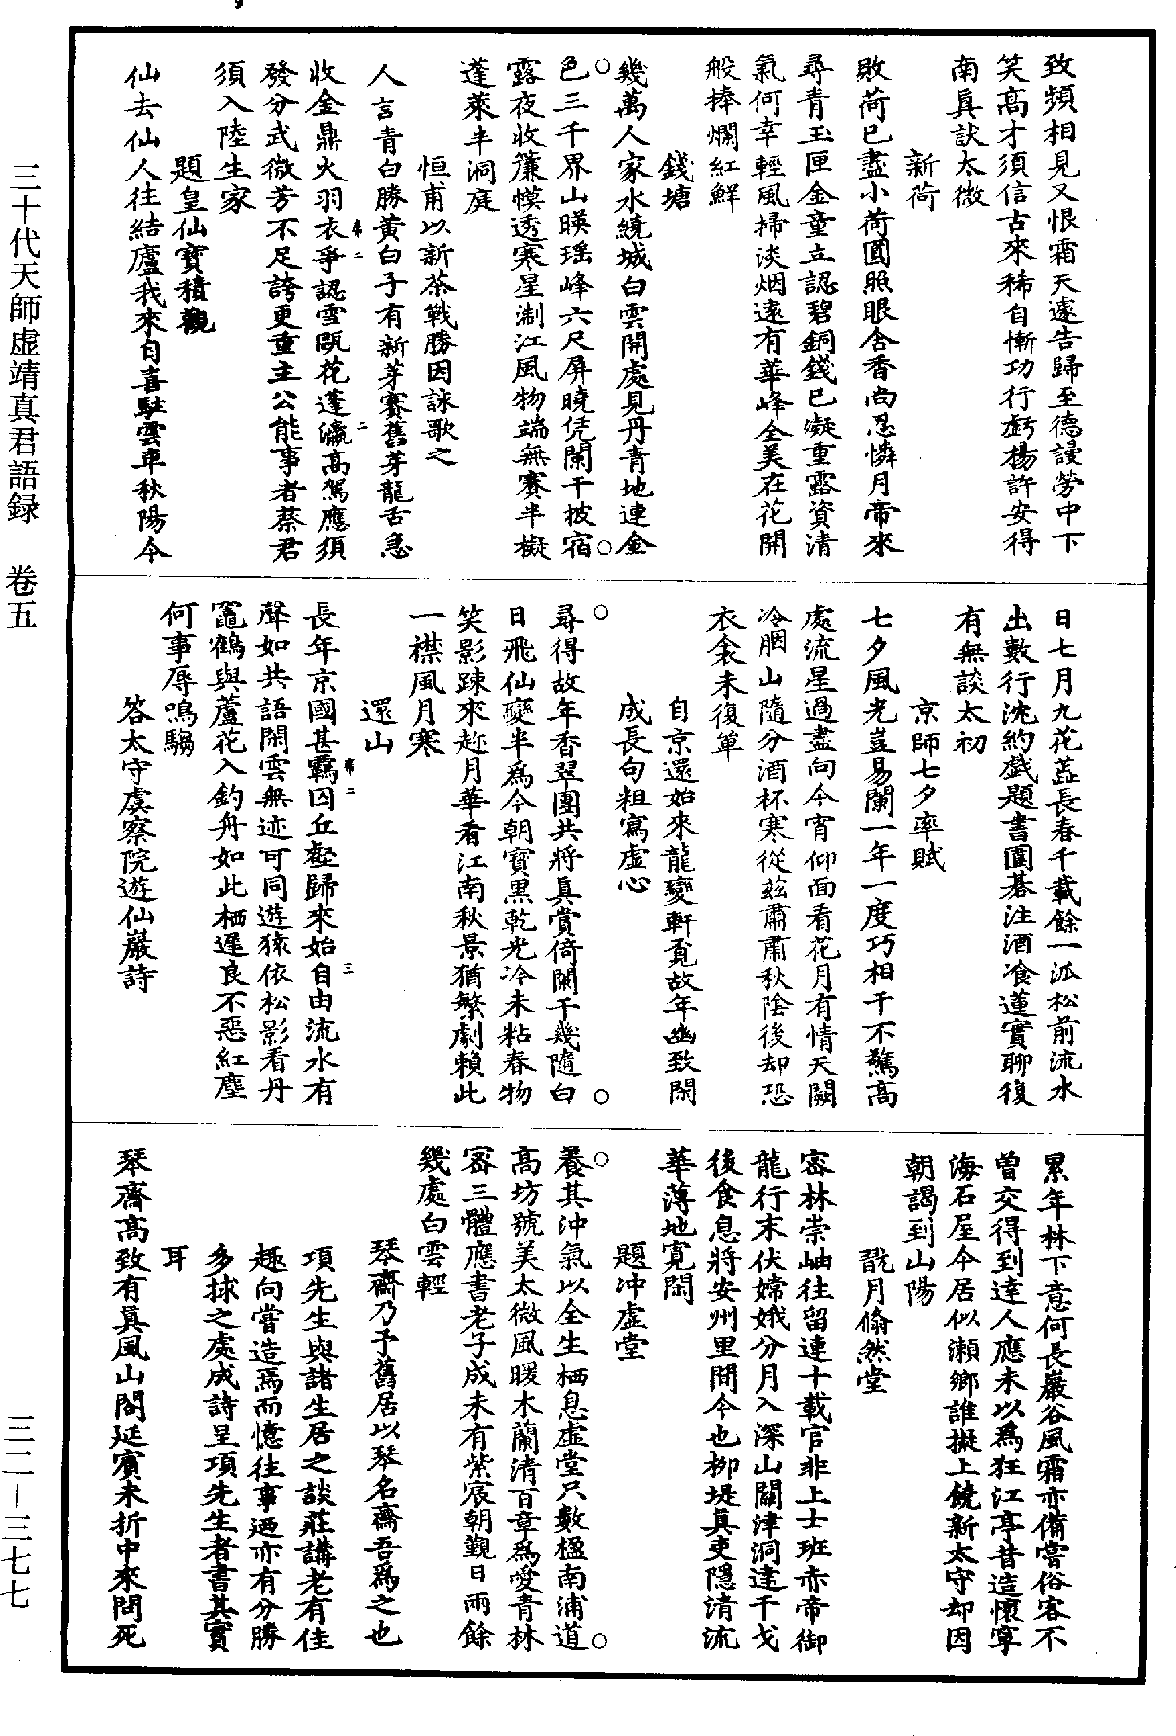 致頻相見又恨霜天遽告歸至德謾勞中下
笑高才須信古來稀自慚功行虧楊許安得
南眞訣太微
新荷
敗荷已盡小荷圓照眼含香尚忍憐月帝來
尋青玉匣金童立認碧銅錢已凝重露資清
氣何幸輕風掃淡烟遠有華峰全美在花開
般捧爛紅鮮
錢塘
幾萬人家水繞城白雲開處見丹青地連金
色三千界山暎瑶峰六尺屏曉凭闌干披宿
露夜收簾幙透寒星淛江風物端無賽半擬
蓬萊半洞庭
恒甫以新茶戰勝因詠歌之
人言青白勝黃白子有新芽賽舊芽龍舌急
收金鼎火羽衣爭認雪甌花蓬瀛高駕應須
發分武微芳不足誇更重主公能事者蔡君
須入陸生家
題皇仙寶積觀
仙去仙人往結廬我來自喜駐雲車秋陽今
日七月九花蕋長春千載餘一派松前流水
出數行沈約戲題書圍碁注酒飡蓮實聊復
有無談太初
京師七夕率賦
七夕風光豈易闌一年一度巧相干不驚高
處流星過盡向今宵仰面看花月有情天闕
冷胭山隨分酒杯寒從玆肅肅秋陰後却恐
衣衾未復單
自京還始來龍變軒覔故年幽致閑
成長句粗寫虚心
尋得故年香翠團共將真賞倚闌干幾隨白
日飛仙變半爲今朝寳黒乾光冷未粘春物
笑影踈來趂月華看江南秋景猶繁劇賴此
一襟風月寒
還山
長年京國甚羈囚丘壑歸來始自由流水有
聲如共語閑雲無迹可同遊猿依松影看丹
竈鶴與蘆花入釣舟如此栖遲良不惡紅塵
何事辱鳴騶
答太守虞察院遊仙巖詩
累年林下意何長巖谷風霜亦備嘗俗客不
曾交得到達人應未以爲狂江亭昔造懷寧
海石屋今居似瀨鄉誰擬上饒新太守却因
朝謁到山陽
翫月翛然堂
密林崇岫往留連十載官非上士班赤帝御
龍行末伏嫦娥分月入深山關津洞達干戈
後食息將安州里間今也柳堤眞吏隱清流
華薄地寛閑
題冲虚堂
養其沖氣以全生栖息虚堂只數楹南浦道
高坊號美太微風暖木蘭清百章爲愛青林
密三體應書老子成未有紫宸朝覲日雨餘
幾處白雲輕
琴齋乃予舊居以琴名齋吾爲之也
項先生與諸生居之談莊講老有佳
趣向嘗造焉而憶往事迺亦有分勝
多捄之處成詩呈項先生者書其實
耳
琴齋高致有眞風山閣延賓未折中來問死
三十代天師虛靖真君語録　卷五
三二—三七七